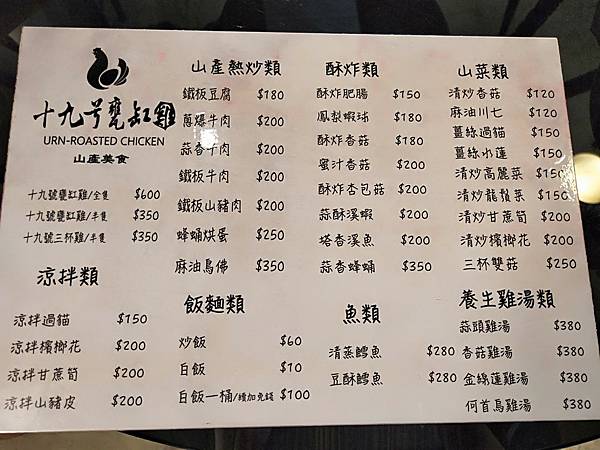 十九号甕缸雞
URN-ROASTED CHICKEN
山產美食
十九號甕缸雞/全隻 $600
十九號甕缸雞/半隻 $350
十九號三杯雞/半隻 $350
涼拌類
涼拌過貓 $150
涼拌檳榔花 $200
涼拌甘蔗筍 $200
涼拌山豬皮 $200
山產熱炒類
鐵板豆腐 $180
蔥爆牛肉 $200
蒜香牛肉 $200
鐵板牛肉 $200
鐵板山豬肉 $200
蜂蛹烘蛋 $250
麻油鳥佛 $350
飯麵類
炒飯 $60
白飯 $10
白飯一桶/續加免錢 $100
酥炸類
酥炸肥腸 $150
鳳梨蝦球 $180
酥炸杏菇 $180
蜜汁杏菇 $200
酥炸杏包菇 $200
蒜酥溪蝦 $200
塔香溪魚 $200
蒜香蜂蛹 $350
魚類
清蒸鱈魚 $280
豆酥鱈魚 $280
山菜類
清炒香菇 $120
麻油川七 $120
薑絲過貓 $150
薑絲水蓮 $150
清炒高麗菜 $150
清炒龍鬚菜 $150
清炒甘蔗筍 $200
清炒檳榔花 $200
三杯雙菇 $250
養生雞湯類
蒜頭雞湯 $380
香菇雞湯 $380
金線蓮雞湯 $380
何首烏雞湯 $380